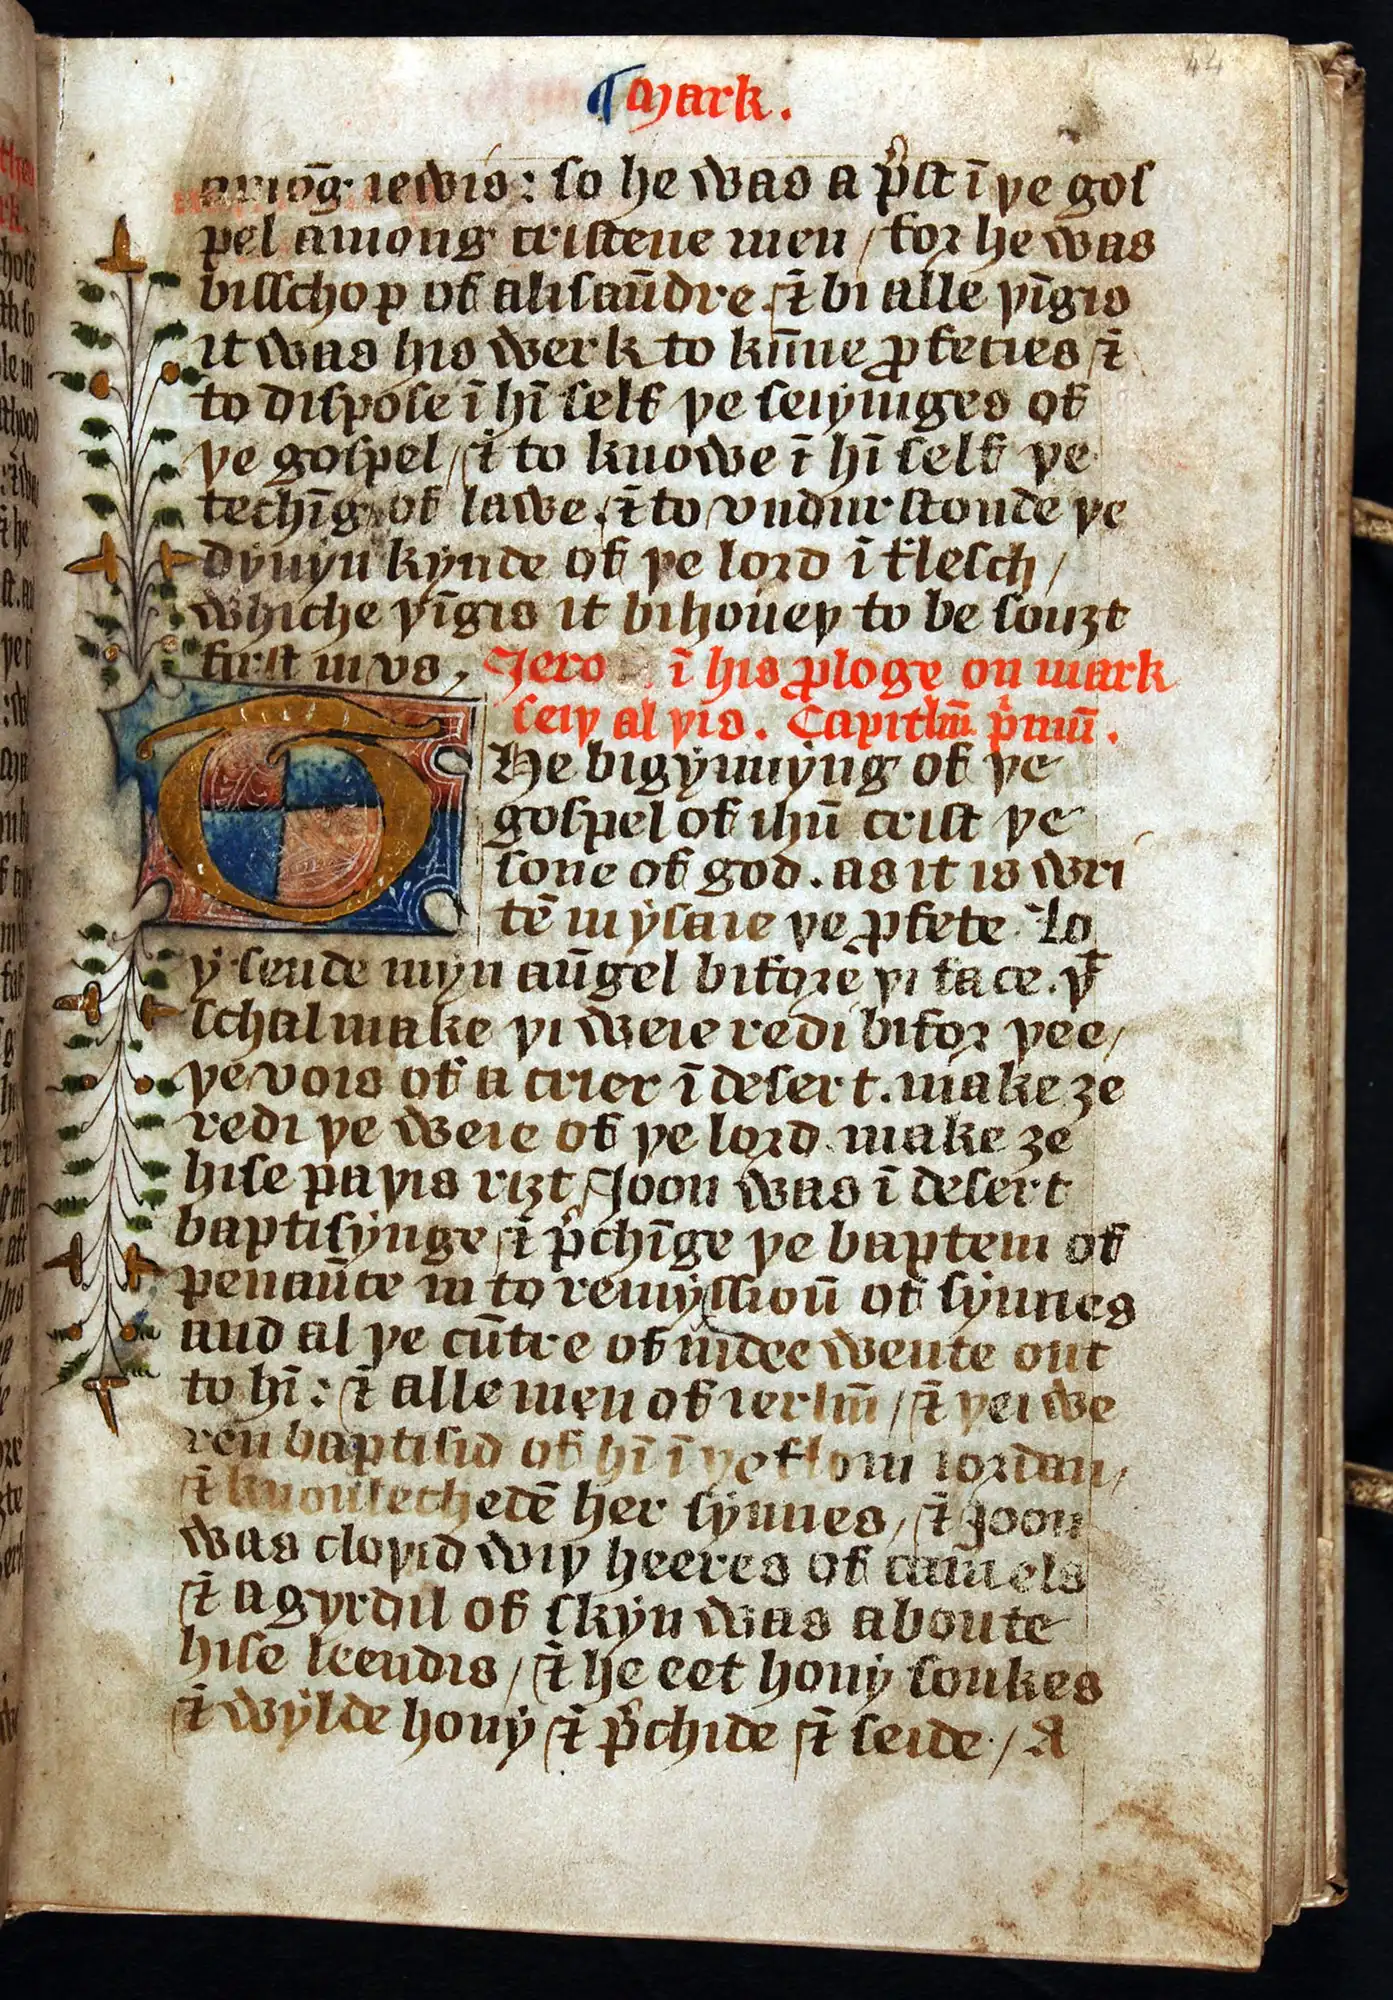 44
¶ Mark.
amōg iewis: so he was a pͬst ī þe gos
pel among cristene men / for he was
bisschop of alisaūdre / ⁊ bi alle þīgis
it was his werk to kūne ꝓfecies / ⁊
to dispose ī hī self þe seiyinges of
þe gospel / ⁊ to knowe ī hī self þe
techīg of lawe / ⁊ to vndurstonde þe
dyuyn kynde of þe lord ī flesch /
whiche þīgis it bihoueþ to be souȝt
first in vs / Jero ī his ꝓloge on mark
seiþ al þis. Capitlm̄ pͥmū.
The bigynnyng of þe
gospel of ihū crist þe
sone of god. as it is wri
tē in ysaie þe ꝓfete. Lo
y sende myn aūgel bifore þi face. þͭ
schal make þi weie redi bifor þee /
þe vois of a crier ī desert. make ȝe
redi þe weie of þe lord. make ȝe
hise paþis riȝt / Joon was ī desert
baptisynge / ⁊ pͬchīge þe baptem of
penaūce in to remyssioū of synnes
and al þe cūtre of iudee wente out
to hī: ⁊ alle men of ierlm̄ / ⁊ þei we
ren baptisid of hī ī þe flom iordan /
⁊ knoulechedē her synnes / ⁊ Joon
was cloþid wiþ heeres of camels
⁊ a gyrdil of skyn was aboute
hise leendis / ⁊ he eet hony soukes
⁊ wylde hony / ⁊ pͬchide / ⁊ seide. / A